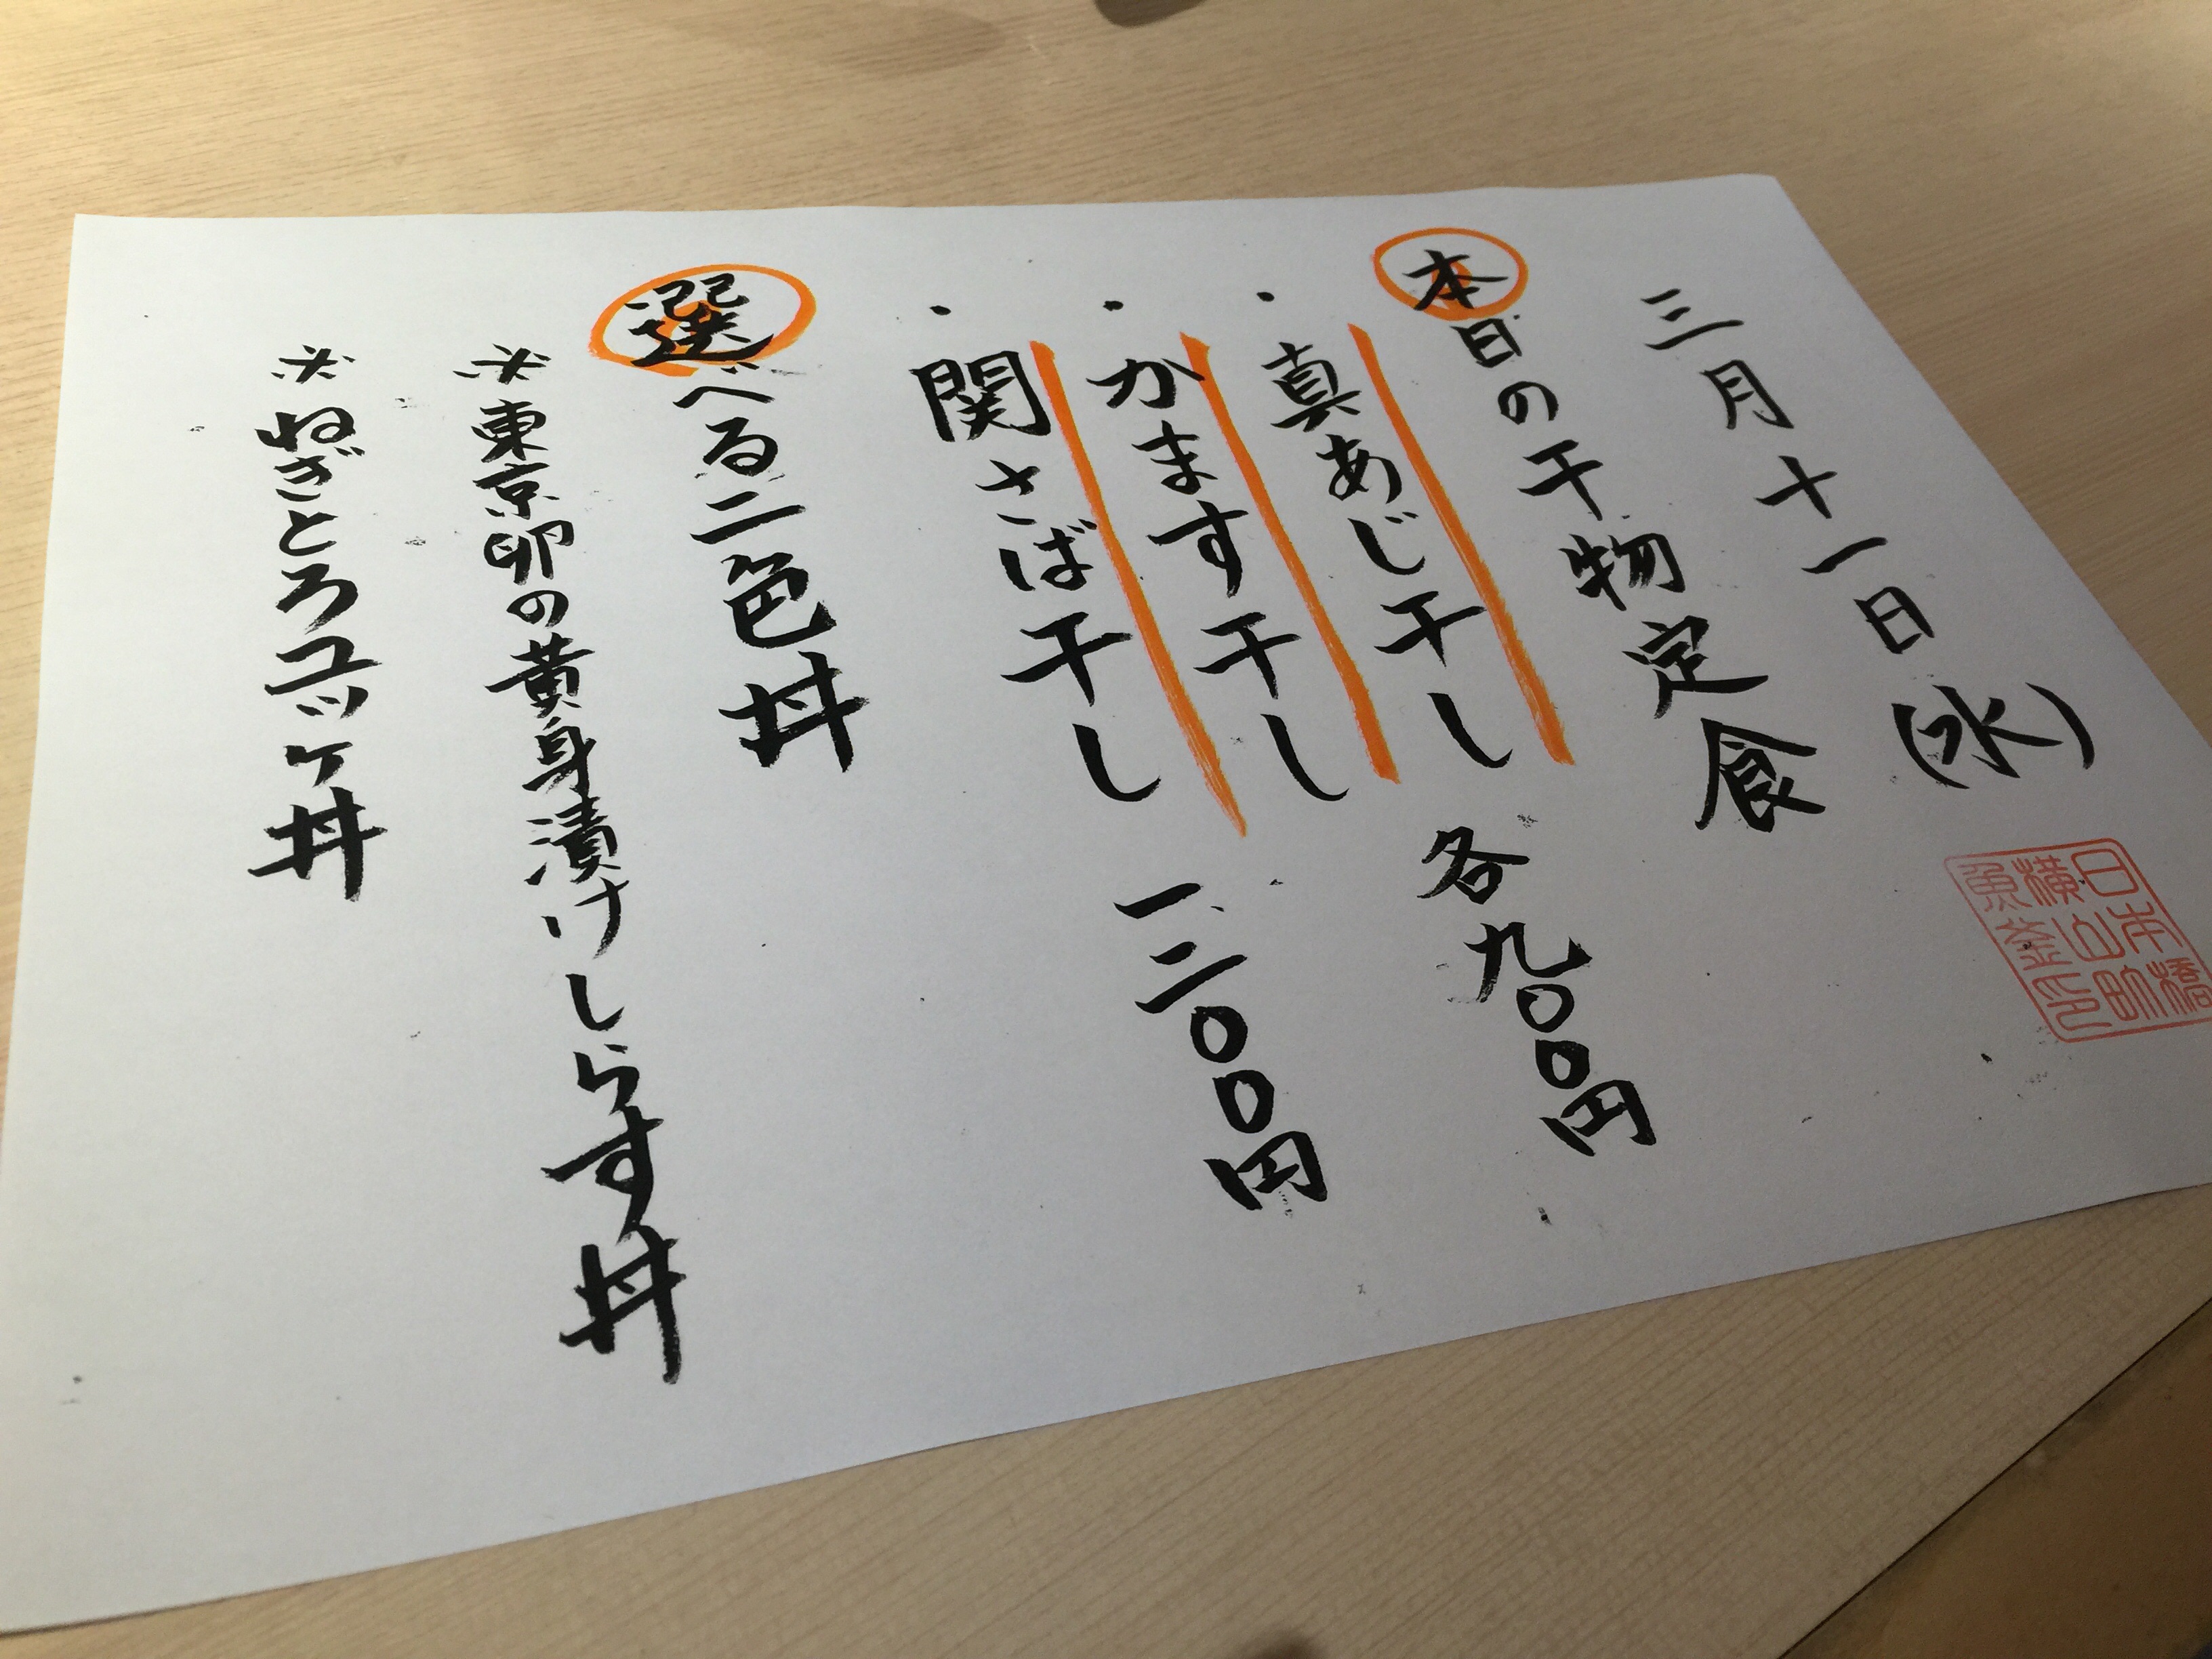 三月十一日(水)
日本橋
横山町
魚釜印
本日の干物定食
・真あじ干し 各九〇〇円
・かます干し
・関さば干し 一二〇〇円
選べる二色丼
※東京卵の黄身漬けしらす丼
※ねぎとろユッケ丼